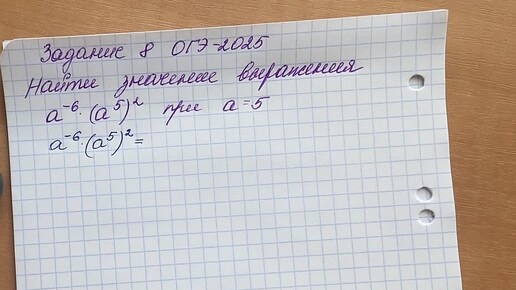 Задание 8 ОГЭ-2025
Найти значение выражения
a⁻⁶·(a⁵)² при a=5
a⁻⁶·(a⁵)²=